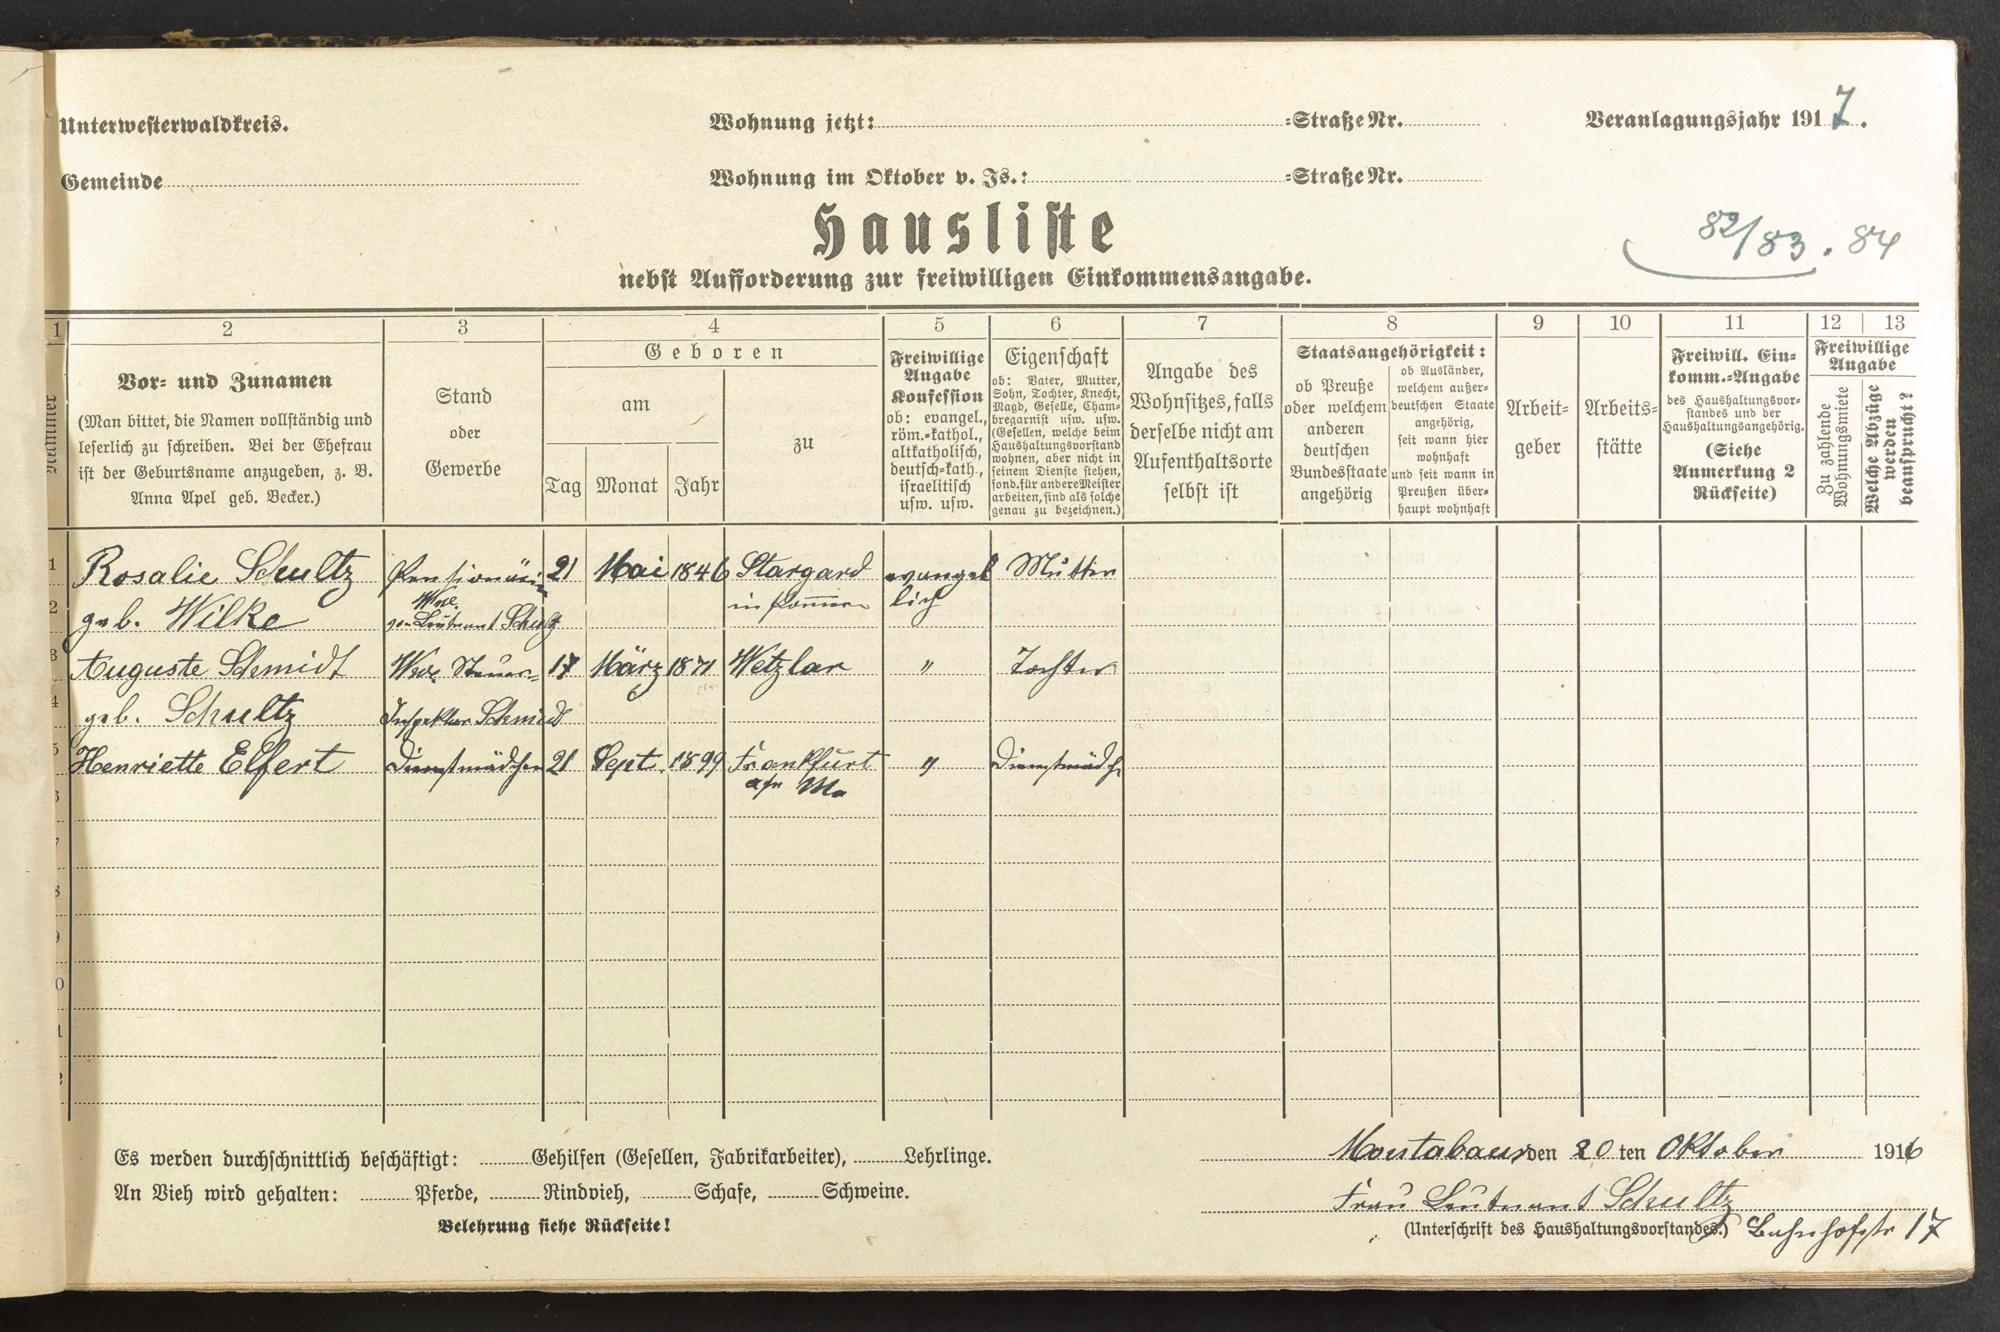 Unterwesterwaldkreis.
Wohnung jetzt: =Straße Nr.
Veranlagungsjahr 1917.
Gemeinde
Wohnung im Oktober v. Js.: =Straße Nr.
Hausliste
82/83. 84
nebst Aufforderung zur freiwilligen Einkommensangabe.
1 2 3 4 5 6 7 8 9 10 11 12 13
Nummer
Vor- und Zunamen
(Man bittet, die Namen vollständig und
leserlich zu schreiben. Bei der Ehefrau
ist der Geburtsname anzugeben, z. B.
Anna Apel geb. Becker.)
Stand
oder
Gewerbe
Geboren
am
Tag Monat Jahr
zu
Freiwillige
Angabe
Konfession
ob: evangel.,
röm.-kathol.,
altkatholisch,
deutsch-kath.,
israelitisch
usw. usw.
Eigenschaft
ob: Vater, Mutter,
Sohn, Tochter, Knecht,
Magd, Geselle, Cham-
bregarnist usw. usw.
(Gesellen, welche beim
Haushaltungsvorstand
wohnen, aber nicht in
seinem Dienste stehen,
sond. für andere Meister
arbeiten, sind als solche
genau zu bezeichnen.)
Angabe des
Wohnsitzes, falls
derselbe nicht am
Aufenthaltsorte
selbst ist
Staatsangehörigkeit:
ob Preuße
oder welchem
anderen
deutschen
Bundesstaate
angehörig
ob Ausländer,
welchem außer-
deutschen Staate
angehörig,
seit wann hier
wohnhaft
und seit wann in
Preußen über-
haupt wohnhaft
Arbeit-
geber
Arbeits-
stätte
Freiwill. Ein-
komm.-Angabe
des Haushaltungsvor-
standes und der
Haushaltungsangehörig.
(Siehe
Anmerkung 2
Rückseite)
Freiwillige
Angabe
Zu zahlende
Wohnungsmiete
Welche Abzüge
werden
beansprucht?
1 Rosalie Schultz Pensionärin 21 Mai 1846 Stargard evangel Mutter
2 geb. Wilke Wwe. von Leutnant Schultz in Pommern lich
3 Auguste Schmidt Wwe. Steuer- 17 März 1871 Wetzlar " Tochter
4 geb. Schultz Inspektor Schmidt
5 Henriette Elfert Dienstmädchen 21 Sept. 1899 Frankfurt " Dienstmädch
6 a/n Ma
7
8
9
0
1
2
Es werden durchschnittlich beschäftigt: Gehilfen (Gesellen, Fabrikarbeiter), Lehrlinge.
Montabaur den 20 ten Oktober 1916
An Vieh wird gehalten: Pferde, Rindvieh, Schafe, Schweine.
Frau Leutnant Schultz
Belehrung siehe Rückseite!
(Unterschrift des Haushaltungsvorstandes.) Bahnhofstr 17